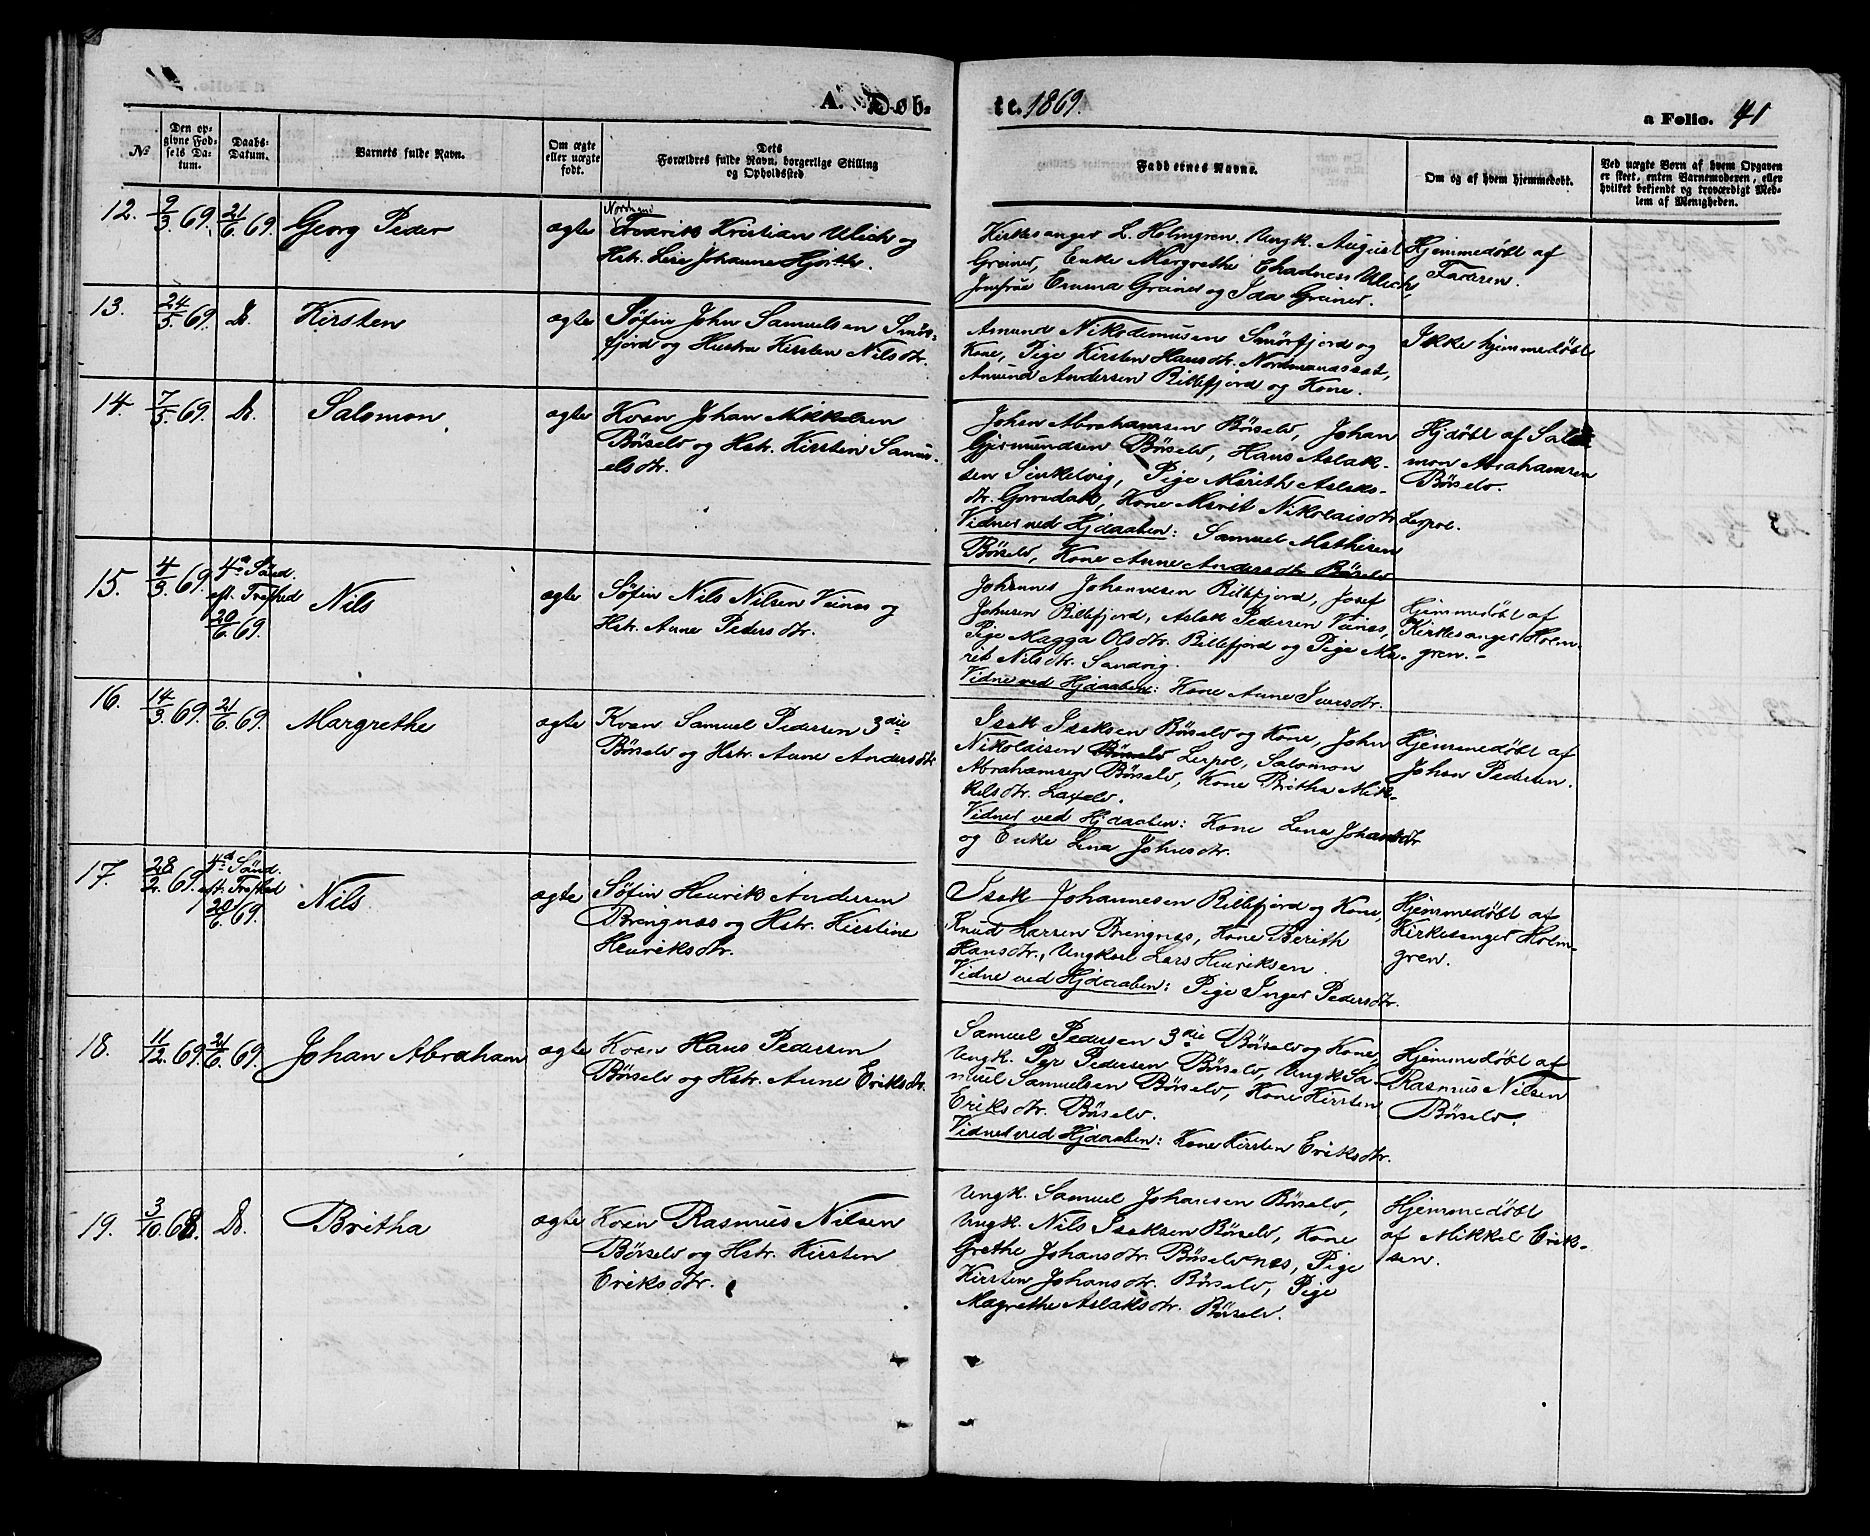 A. Døb-
te. 1869.
a Folio. 41
№
Den op-
givne Fød-
sels Da-
tum.
Daabs-
Datum.
Barnets fulde Navn.
Om ægte
eller uægte
født.
Dets
Forældres fulde Navn, borgerlige Stilling
og Opholdssted
Faddernes Navne.
Om og af hvem hjemmedøbt.
Ved uægte Børn af hvem Opgaven
er skeet, enten Barnemoderen, eller
hvilket bekjendt og troværdigt Med-
lem af Menigheden.
12. 9/3 69. 21/6 69. Georg Peder
ægte
Nordmand
Fredrik Kristian Ulich og
Hstr. Lise Johanne
Kirkesanger L. Holmgren, Ungk. August
Greiner, Enke Margrethe Ulich,
Jomfrue Emma Greiner og Ida Greiner.
Hjemmedøbt af
Faderen.
13. 24/5 69. Do. Kirsten
ægte
Søfin John Samuelsen Smör-
fjord og Hustru Kirsten Nilsdtr.
Amund Nikodemusen Smörfjord og
Kone, Pige Kirsten Hansdtr. Nordmandsset,
Amund Andersen Billefjord og Kone.
Ikke hjemmedøbt
14. 7/5 69. Do. Salomon.
ægte
Kvæn Johan Mikkelsen
Börselv og Hstr. Kirsten Samu-
elsdtr.
Johan Abrahamsen Börselv, Johan
Gjermundsen Börselv, Hans Aslak-
sen Sinkelvig, Pige Marith Aslaks-
dtr. Kone Marit Nikolaisdtr. Lerpol.
Vidner ved Hjdaaben: Samuel Mathisen
Börselv, Kone Anne Andersdtr. Börselv
Hjdøbt af Salo-
mon Abrahamsen
Börselv.
15. 4/3 69. 4de Sönd.
eft. Trefhed
20/6 69. Nils
ægte
Søfin Nils Nilsen Veines og
Hstr. Anne Pedersdtr.
Johannes Johannesen Billefjord, Josef
Johnsen Billefjord, Aslak Pedersen Veines,
Pige Magga Olsdtr. Billefjord og Pige Ma-
rit Nilsdtr. Sandvig.
Vidne ved Hjdaaben: Kone Anne Iversdtr.
Hjemmedøbt af
Kirkesanger Holm-
gren. -
16. 14/3 69. 21/6 69. Margrethe
ægte
Kvæn Samuel Pedersen 3die
Börselv og Hstr. Anne Andersdtr
Isak Isaksen Börselv og Kone, John
Nikolaisen Börselv Lerpol, Salomon
Abrahamsen Börselv, Kone Britha Mik-
kelsdtr. Laxelv.
Vidner ved Hjdaaben: Kone Lena Johansdtr
og Enke Lena Johnsdtr.
Hjemmedøbt af
Johan Pedersen.
17. 28/2 69. 4de Sönd.
eft. Trefhed
20/6 69. Nils
ægte
Søfin Henrik Andersen
Brengnæs og Hstr. Kirstine
Henriksdtr.
Isak Johannesen Billefjord og Kone,
Knud Larsen Brengnæs, Kone Berith
Hansdtr., Ungkarl Lars Henriksen.
Vidne ved Hjdaaben: Pige Inger Pedersdtr.
Hjemmedøbt af
Kirkesanger Holm-
gren.
18. 11/12 69. 21/6 69. Johan Abraham
ægte
Kvæn Hans Pedersen
Börselv og Hstr. Anne Eriksdtr.
Samuel Pedersen 3die Börselv og Kone,
Ungk. Per Pedersen Börselv, Ungk Sa-
muel Samuelsen Börselv, Kone Kirsten
Eriksdtr. Börselv.
Vidner ved Hjdaaben: Kone Kirsten Eriksdtr.
Hjemmedøbt af
Rasmus Nilsen
Börselv.
19. 3/10 68. Do. Britha
ægte
Kvæn Rasmus Nilsen
Börselv og Hstr. Kirsten
Eriksdtr.
Ungk. Samuel Johansen Börselv,
Ungk. Nils Isaksen Börselv, Kone
Grethe Johansdtr. Börselvnes, Pige
Kirsten Johansdtr. Börselv, Pige
Magrethe Aslaksdtr. Börselv.
Hjemmedøbt
af Mikkel Erik-
sen.